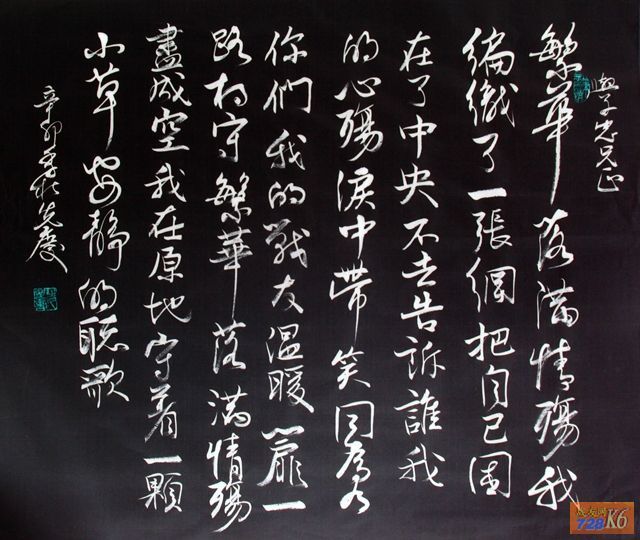 子忠兄正
繁華落滿情殤我
編織了一張網把自己困
在了中央不去告訴誰我
的心殤淚中帶笑因為
你們我的戰友溫暖心扉一
路相守繁華落滿情殤
盡成空我在原地守着一顆
小草安靜的聽歌
辛卯
728K6